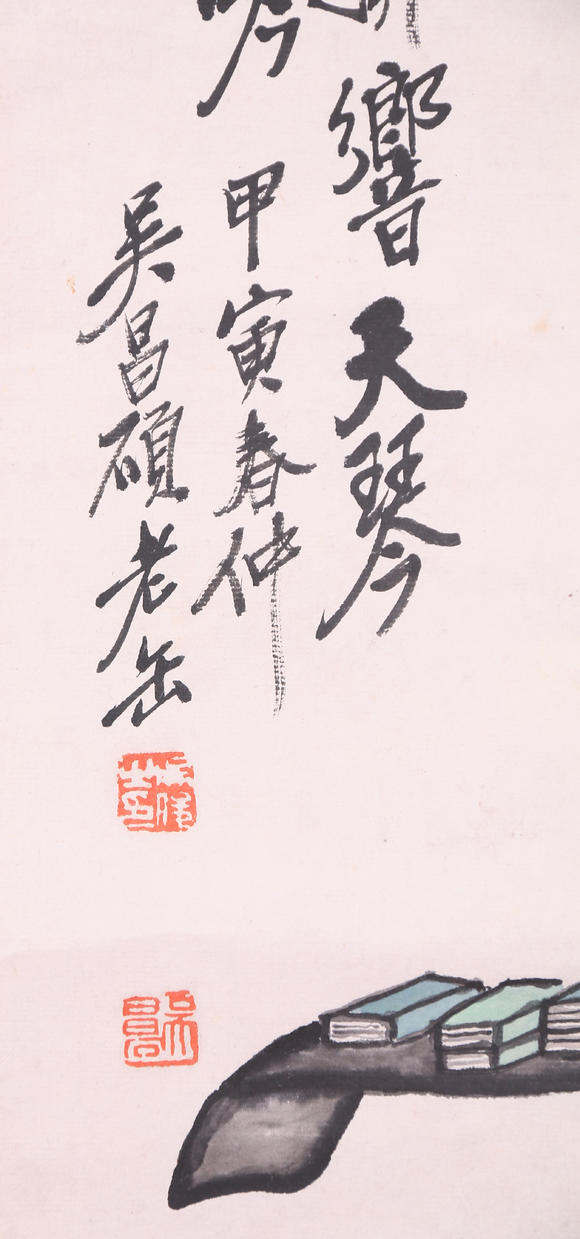 響天琴
甲寅春仲
吳昌碩老缶